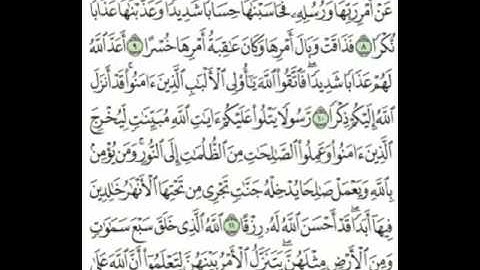 عَنْ أَمْرِ رَبِّهَا وَرُسُلِهِۦ فَحَاسَبْنَٰهَا حِسَابًا شَدِيدًا وَعَذَّبْنَٰهَا عَذَابًا
نُّكْرًا ٨ فَذَاقَتْ وَبَالَ أَمْرِهَا وَكَانَ عَٰقِبَةُ أَمْرِهَا خُسْرًا ٩ أَعَدَّ ٱللَّهُ
لَهُمْ عَذَابًا شَدِيدًا ۖ فَٱتَّقُوا۟ ٱللَّهَ يَٰٓأُو۟لِى ٱلْأَلْبَٰبِ ٱلَّذِينَ ءَامَنُوا۟ ۚ قَدْ أَنزَلَ
ٱللَّهُ إِلَيْكُمْ ذِكْرًا ١٠ رَّسُولًا يَتْلُوا۟ عَلَيْكُمْ ءَايَٰتِ ٱللَّهِ مُبَيِّنَٰتٍ لِّيُخْرِجَ
ٱلَّذِينَ ءَامَنُوا۟ وَعَمِلُوا۟ ٱلصَّٰلِحَٰتِ مِنَ ٱلظُّلُمَٰتِ إِلَى ٱلنُّورِ ۚ وَمَن يُؤْمِنۢ
بِٱللَّهِ وَيَعْمَلْ صَٰلِحًا يُدْخِلْهُ جَنَّٰتٍ تَجْرِى مِن تَحْتِهَا ٱلْأَنْهَٰرُ خَٰلِدِينَ
فِيهَآ أَبَدًا ۖ قَدْ أَحْسَنَ ٱللَّهُ لَهُۥ رِزْقًا ١١ ٱللَّهُ ٱلَّذِى خَلَقَ سَبْعَ سَمَٰوَٰتٍ
وَمِنَ ٱلْأَرْضِ مِثْلَهُنَّ يَتَنَزَّلُ ٱلْأَمْرُ بَيْنَهُنَّ لِتَعْلَمُوٓا۟ أَنَّ ٱللَّهَ عَلَىٰ